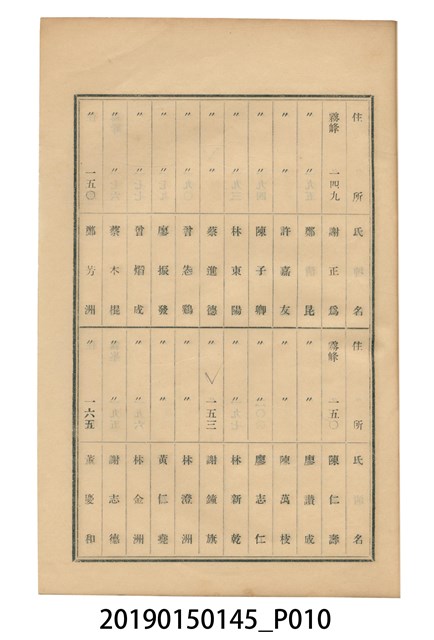 住所 氏名
霧峰 一四九 謝正為
〃 〃 鄭 昆
〃 〃 許嘉友
〃 〃 陳子卿
〃 〃 林東陽
〃 〃 蔡進德
〃 〃 曾 鶴
〃 〃 廖振發
〃 〃 曾熠成
〃 〃 蔡木棍
〃 一五〇 鄭芳洲
住所 氏名
霧峰 一五〇 陳仁
〃 〃 廖讚成
〃 〃 陳萬枝
〃 〃 廖志仁
〃 〃 林新乾
〃 一五三 謝鐘旗
〃 〃 林澄洲
〃 〃 黃仁
〃 〃 林金洲
〃 〃 謝志德
〃 一六五 董慶和
20190150145_P010